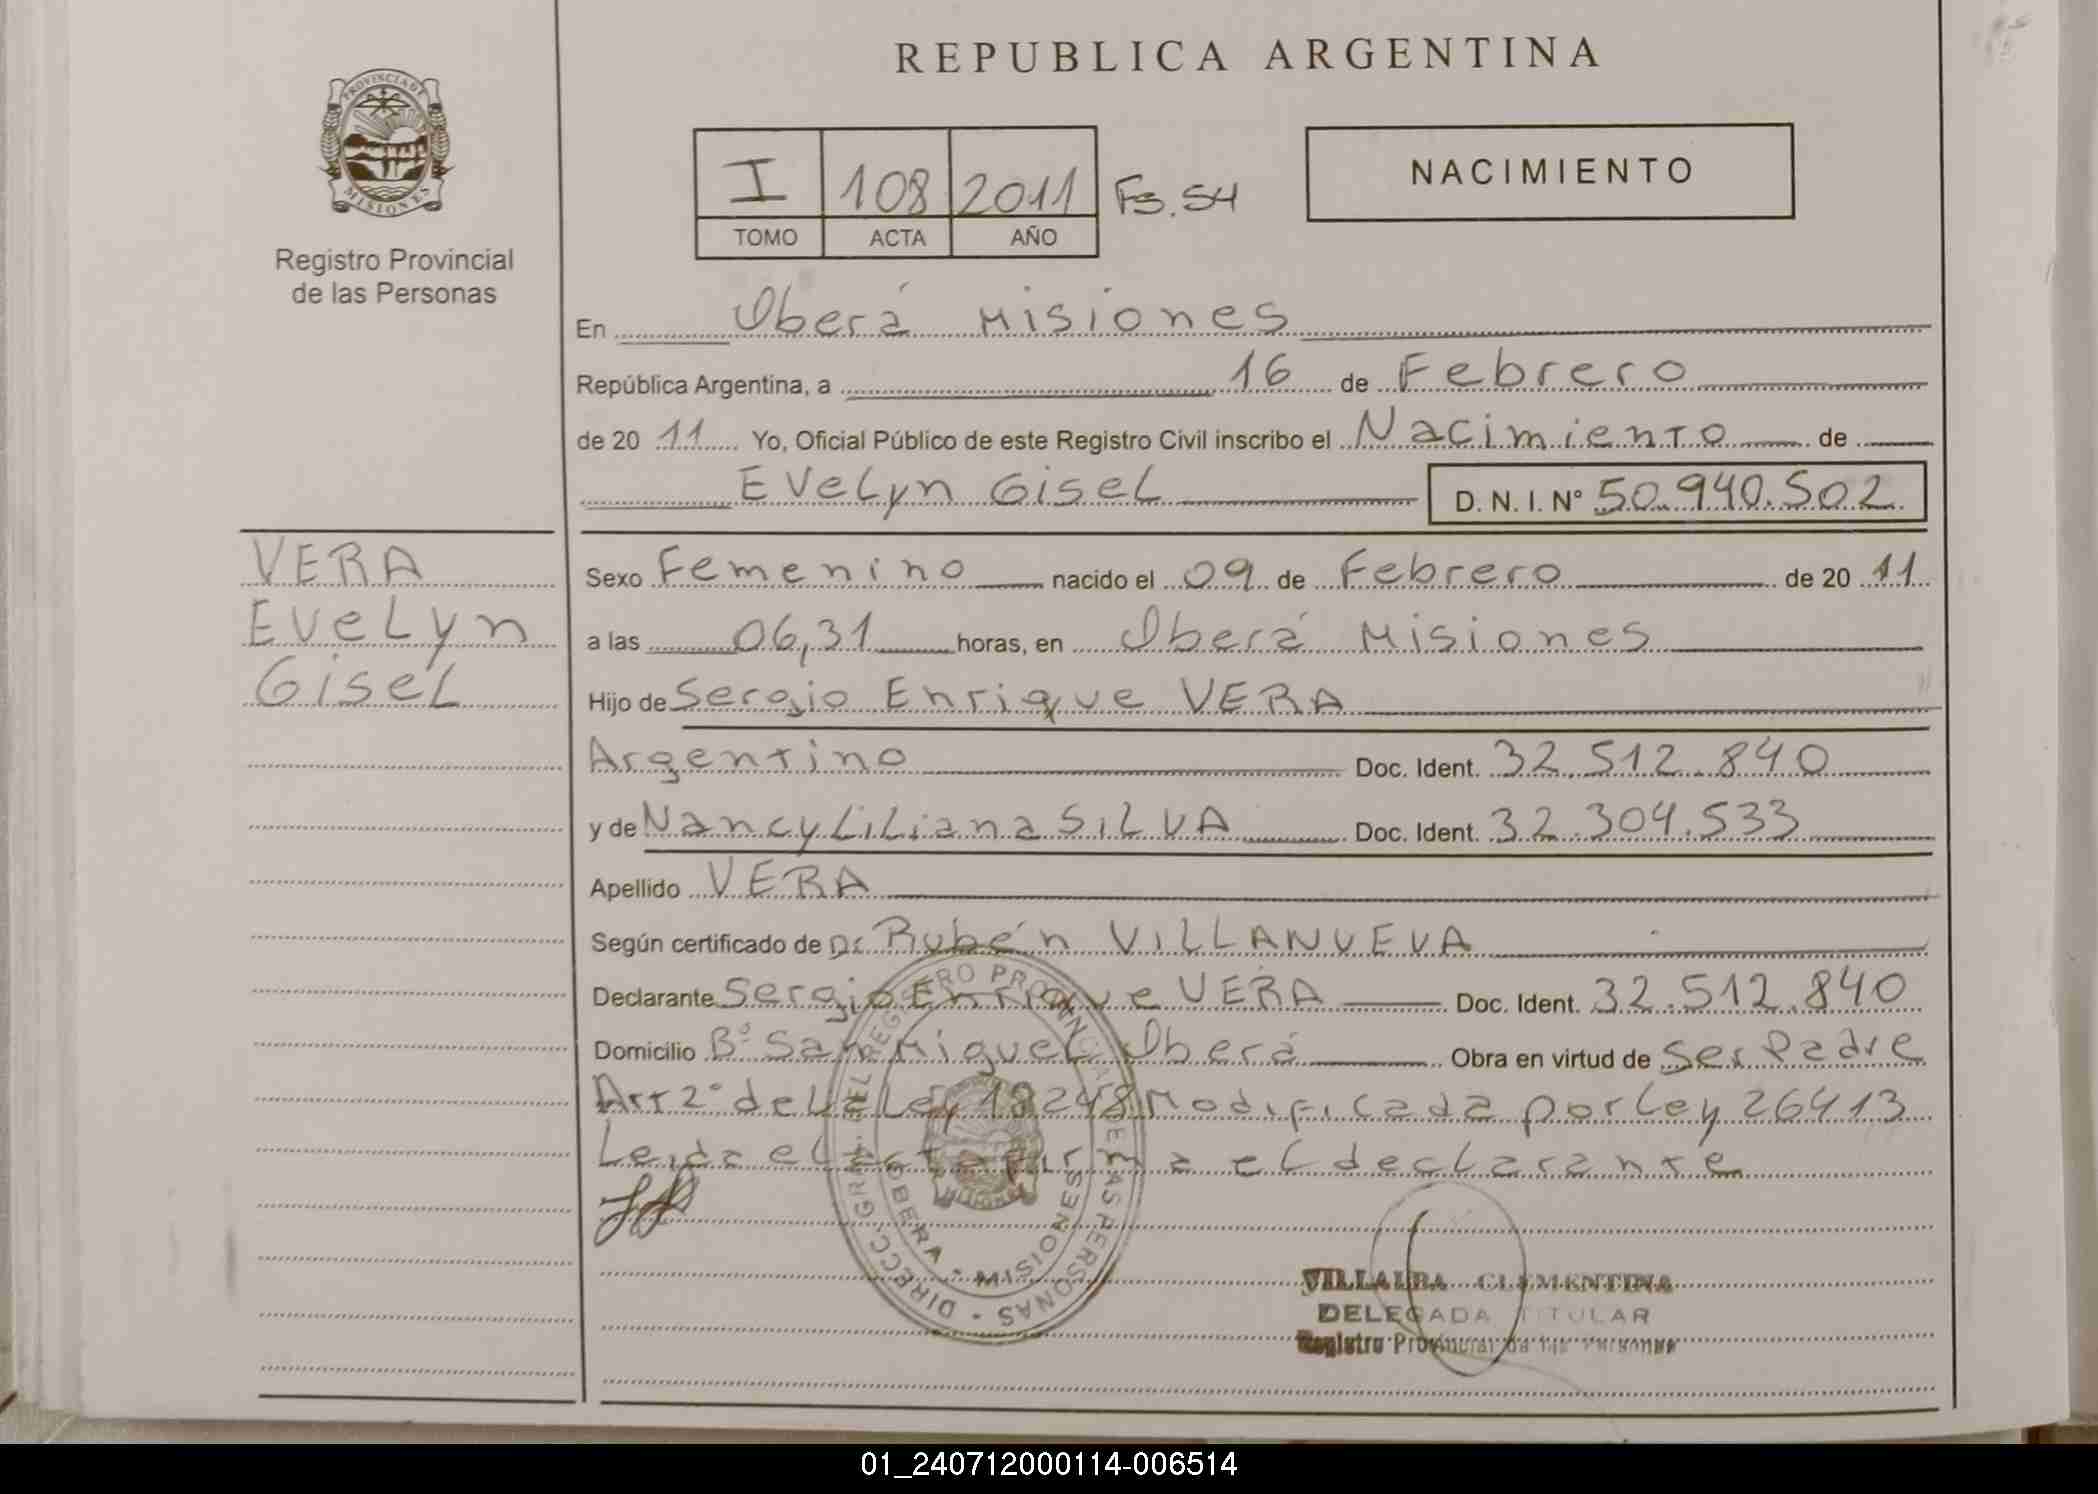 REPUBLICA ARGENTINA
PROVINCIA DE
MISIONES
Registro Provincial
de las Personas
I 108 2011 Fs. 54
TOMO ACTA AÑO
NACIMIENTO
En Oberá Misiones
República Argentina, a 16 de Febrero
de 20 11 Yo, Oficial Público de este Registro Civil inscribo el Nacimiento de
Evelyn Gisel D. N. I. Nº 50.940.502
VERA
Evelyn
Gisel
Sexo Femenino nacido el 09 de Febrero de 20 11
a las 06,31 horas, en Oberá Misiones
Hijo de Sergio Enrique VERA
Argentino Doc. Ident. 32.512.840
y de Nancy Liliana SILVA Doc. Ident. 32.304.533
Apellido VERA
Según certificado de Dr. Rubén VILLANUEVA
Declarante Sergio Enrique VERA Doc. Ident. 32.512.840
Domicilio Bº San Miguel Oberá Obra en virtud de Ser Padre
Art 2º de la Ley 18248 Modificada por Ley 26413
Leida el Acta firma el declarante
DIRECC. GRAL. DEL REGISTRO PROVINCIAL DE LAS PERSONAS -
OBERA - MISIONES
VILLALBA CLEMENTINA
DELEGADA TITULAR
Registro Provincial de las Personas
01_240712000114-006514